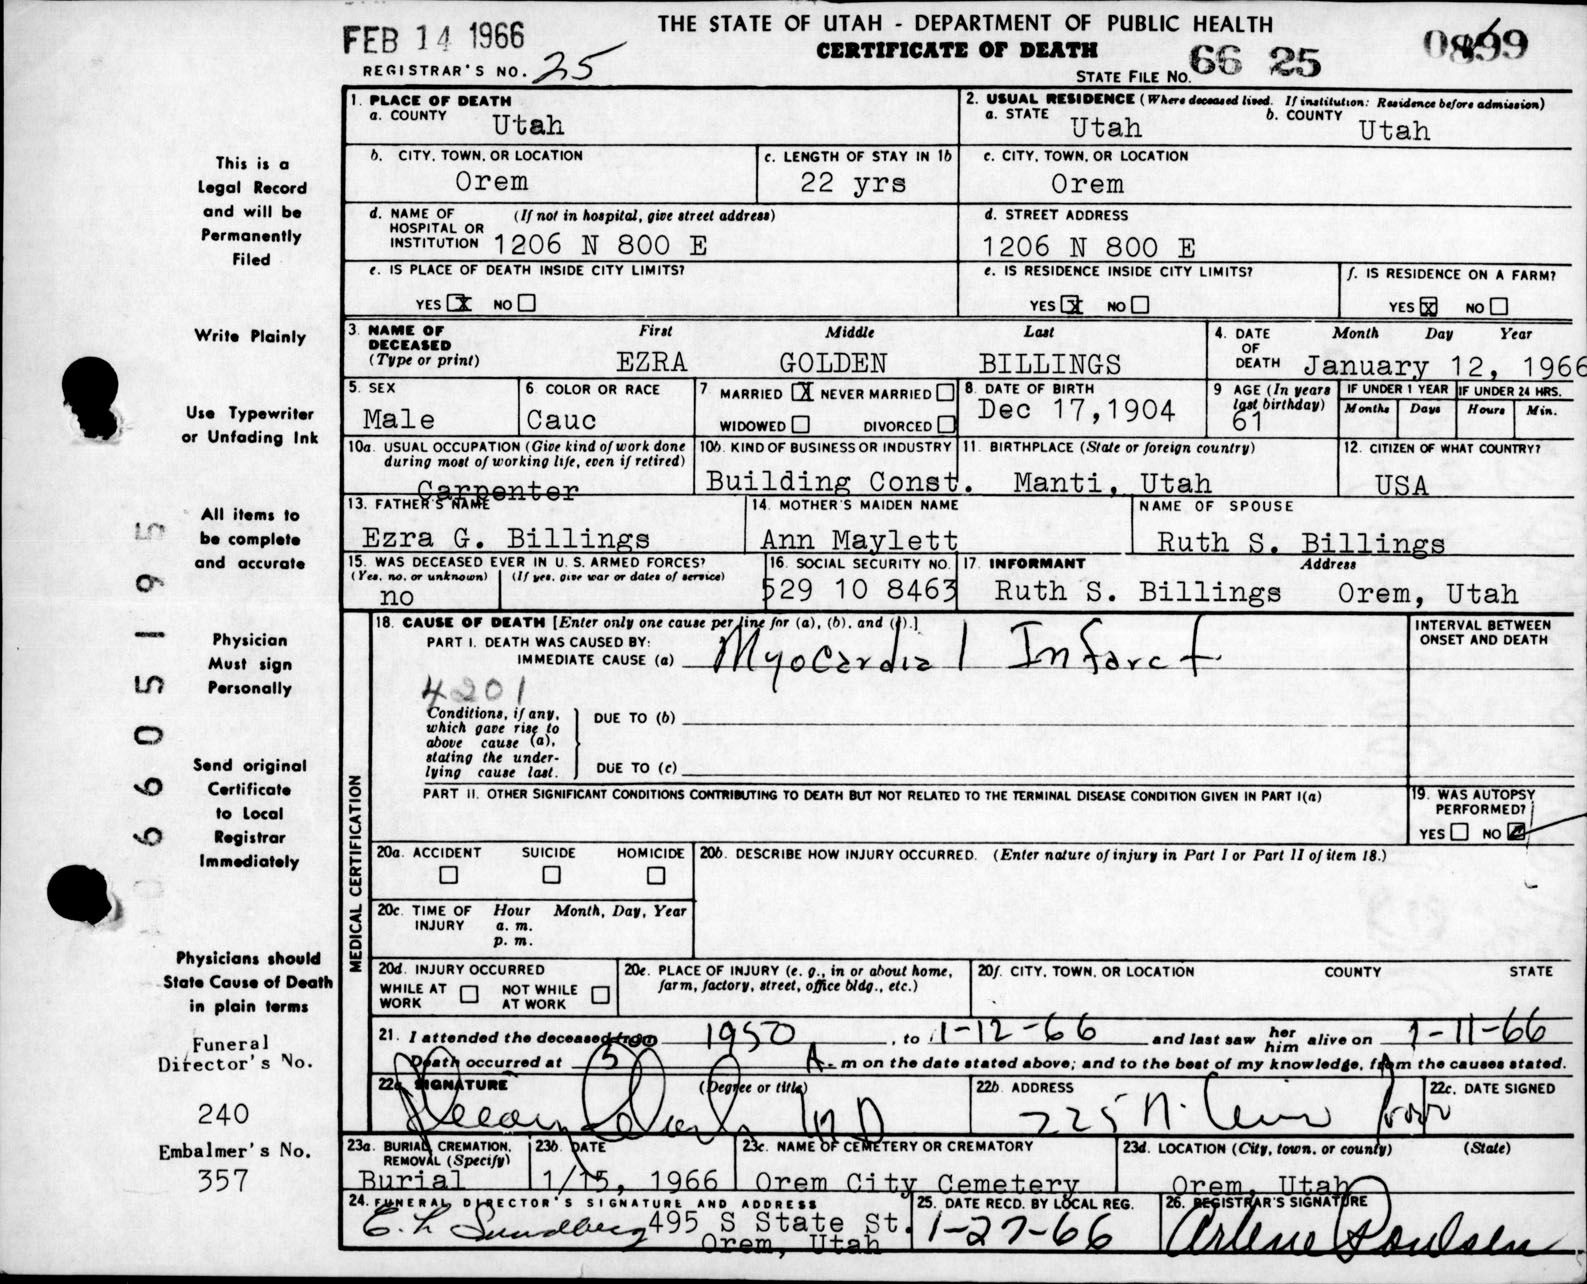 FEB 14 1966
THE STATE OF UTAH - DEPARTMENT OF PUBLIC HEALTH
CERTIFICATE OF DEATH
REGISTRAR'S NO. 25
STATE FILE NO. 66 25
1. PLACE OF DEATH
a. COUNTY Utah
2. USUAL RESIDENCE (Where deceased lived. If institution: Residence before admission)
a. STATE Utah b. COUNTY Utah
b. CITY, TOWN, OR LOCATION
Orem
c. LENGTH OF STAY IN 1b
22 yrs
c. CITY, TOWN, OR LOCATION
Orem
d. NAME OF HOSPITAL OR INSTITUTION (If not in hospital, give street address)
1206 N 800 E
d. STREET ADDRESS
1206 N 800 E
e. IS PLACE OF DEATH INSIDE CITY LIMITS?
YES X NO
e. IS RESIDENCE INSIDE CITY LIMITS?
YES X NO
f. IS RESIDENCE ON A FARM?
YES X NO
3. NAME OF DECEASED (Type or print)
First Middle Last
EZRA GOLDEN BILLINGS
4. DATE OF DEATH Month Day Year
January 12, 1966
5. SEX
Male
6. COLOR OR RACE
Cauc
7 MARRIED X NEVER MARRIED
WIDOWED DIVORCED
8. DATE OF BIRTH
Dec 17,1904
9 AGE (In years last birthday)
61
IF UNDER 1 YEAR
Months Days
IF UNDER 24 HRS.
Hours Min.
10a. USUAL OCCUPATION (Give kind of work done during most of working life, even if retired)
Carpenter
10b. KIND OF BUSINESS OR INDUSTRY
Building Const.
11. BIRTHPLACE (State or foreign country)
Manti, Utah
12. CITIZEN OF WHAT COUNTRY?
USA
13. FATHER'S NAME
Ezra G. Billings
14. MOTHER'S MAIDEN NAME
Ann Maylett
NAME OF SPOUSE
Ruth S. Billings
15. WAS DECEASED EVER IN U. S. ARMED FORCES?
(Yes, no, or unknown) (If yes, give war or dates of service)
no
16. SOCIAL SECURITY NO.
529 10 8463
17. INFORMANT Address
Ruth S. Billings Orem, Utah
18. CAUSE OF DEATH [Enter only one cause per line for (a), (b), and (c).]
PART I. DEATH WAS CAUSED BY:
IMMEDIATE CAUSE (a) Myocardial Infarct
4201
Conditions, if any, which gave rise to above cause (a), stating the underlying cause last.
DUE TO (b)
DUE TO (c)
INTERVAL BETWEEN ONSET AND DEATH
PART II. OTHER SIGNIFICANT CONDITIONS CONTRIBUTING TO DEATH BUT NOT RELATED TO THE TERMINAL DISEASE CONDITION GIVEN IN PART I(a)
19. WAS AUTOPSY PERFORMED?
YES NO
MEDICAL CERTIFICATION
20a. ACCIDENT SUICIDE HOMICIDE
20b. DESCRIBE HOW INJURY OCCURRED. (Enter nature of injury in Part I or Part II of item 18.)
20c. TIME OF INJURY Hour Month, Day, Year
a. m.
p. m.
20d. INJURY OCCURRED
WHILE AT WORK NOT WHILE AT WORK
20e. PLACE OF INJURY (e. g., in or about home, farm, factory, street, office bldg., etc.)
20f. CITY, TOWN, OR LOCATION COUNTY STATE
21. I attended the deceased from 1950, to 1-12-66 and last saw her him alive on 1-11-66
Death occurred at 5 A. m on the date stated above; and to the best of my knowledge, from the causes stated.
22a. SIGNATURE (Degree or title)
MD
22b. ADDRESS
225 N.
22c. DATE SIGNED
23a. BURIAL, CREMATION, REMOVAL (Specify)
Burial
23b. DATE
1/15, 1966
23c. NAME OF CEMETERY OR CREMATORY
Orem City Cemetery
23d. LOCATION (City, town, or county) (State)
Orem, Utah
24. FUNERAL DIRECTOR'S SIGNATURE AND ADDRESS
C. L. Sundberg 495 S State St.
Orem, Utah
25. DATE RECD. BY LOCAL REG.
1-27-66
26. REGISTRAR'S SIGNATURE
Arlene Poulsen
This is a
Legal Record
and will be
Permanently
Filed
Write Plainly
Use Typewriter
or Unfading Ink
All items to
be complete
and accurate
Physician
Must sign
Personally
Send original
Certificate
to Local
Registrar
Immediately
Physicians should
State Cause of Death
in plain terms
Funeral
Director's No.
240
Embalmer's No.
357
6605195